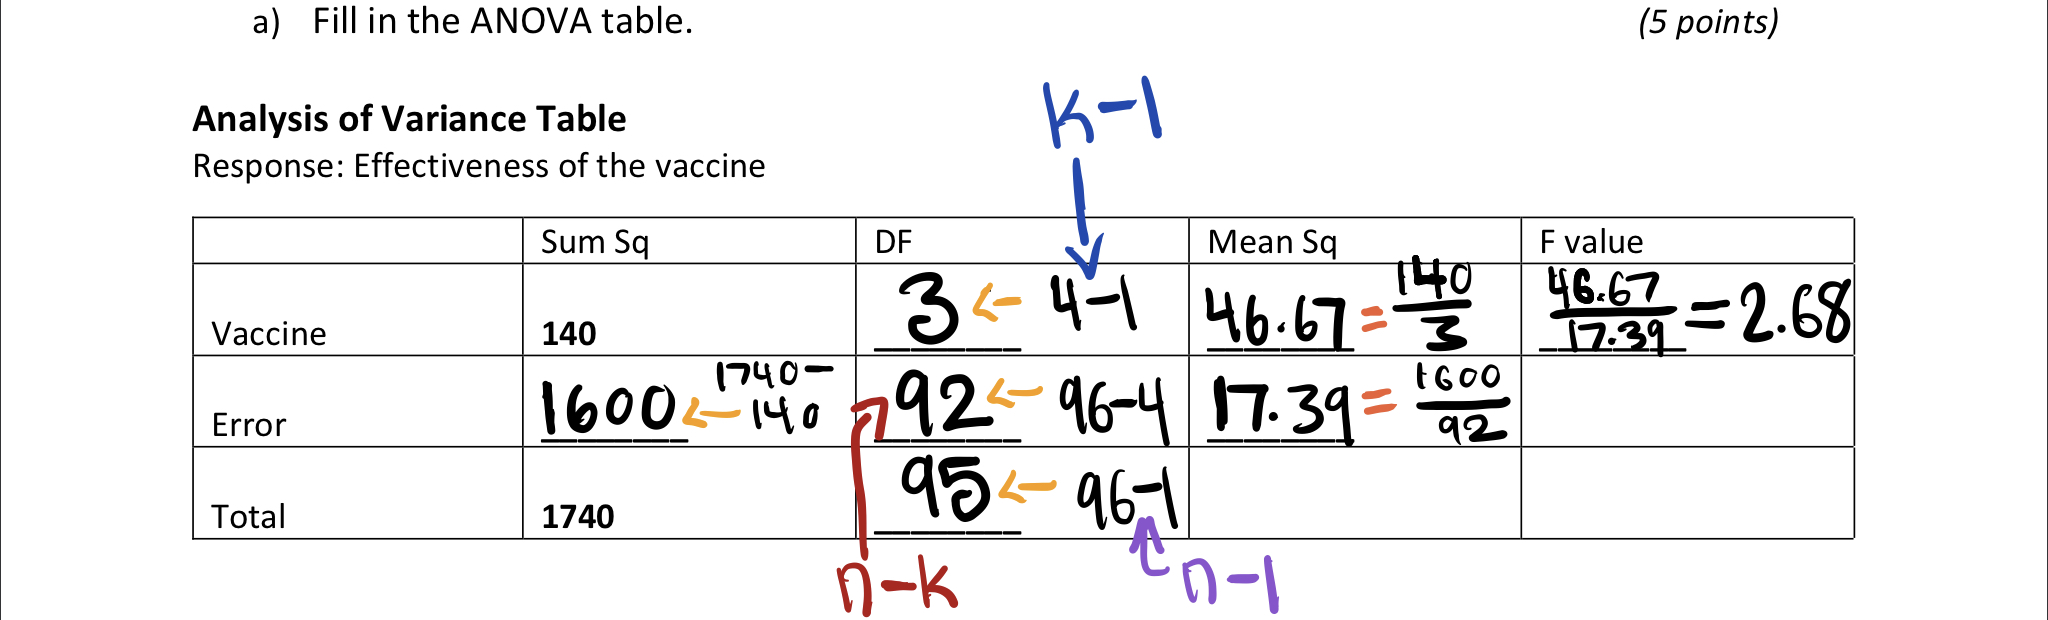 a) Fill in the ANOVA table. (5 points)
k-1
Analysis of Variance Table
Response: Effectiveness of the vaccine
Sum Sq DF Mean Sq F value
Vaccine 140 3 ← 4-1 46.67 = 140/3 46.67/17.39 = 2.68
Error 1600 ← 1740-140 92 ← 96-4 17.39 = 1600/92
Total 1740 95 ← 96-1
n-k n-1